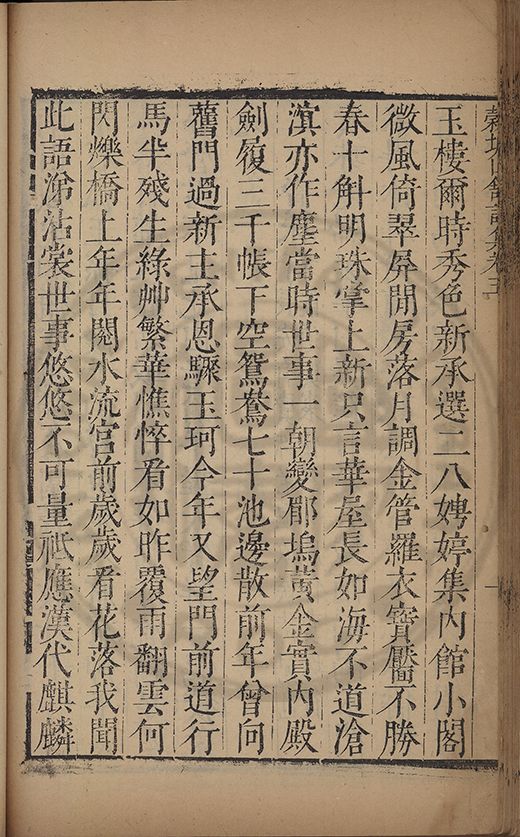 玉樓爾時秀色新承選二八娉婷集內館小閣
微風倚翠屏閒房落月調金管羅衣寶靨不勝
春十斛明珠掌上新只言華屋長如海不道滄
溟亦作塵當時世事一朝變郿塢黃金實內殿
劍履三千帳下空鴛鴦七十池邊散前年曾向
舊門過新主承恩驟玉珂今年又望門前道行
馬半殘生綠艸繁華憔悴看如昨覆雨翻雲何
閃爍橋上年年閱水流宮前歲歲看花落我聞
此語涕沾裳世事悠悠不可量祗應漢代麒麟